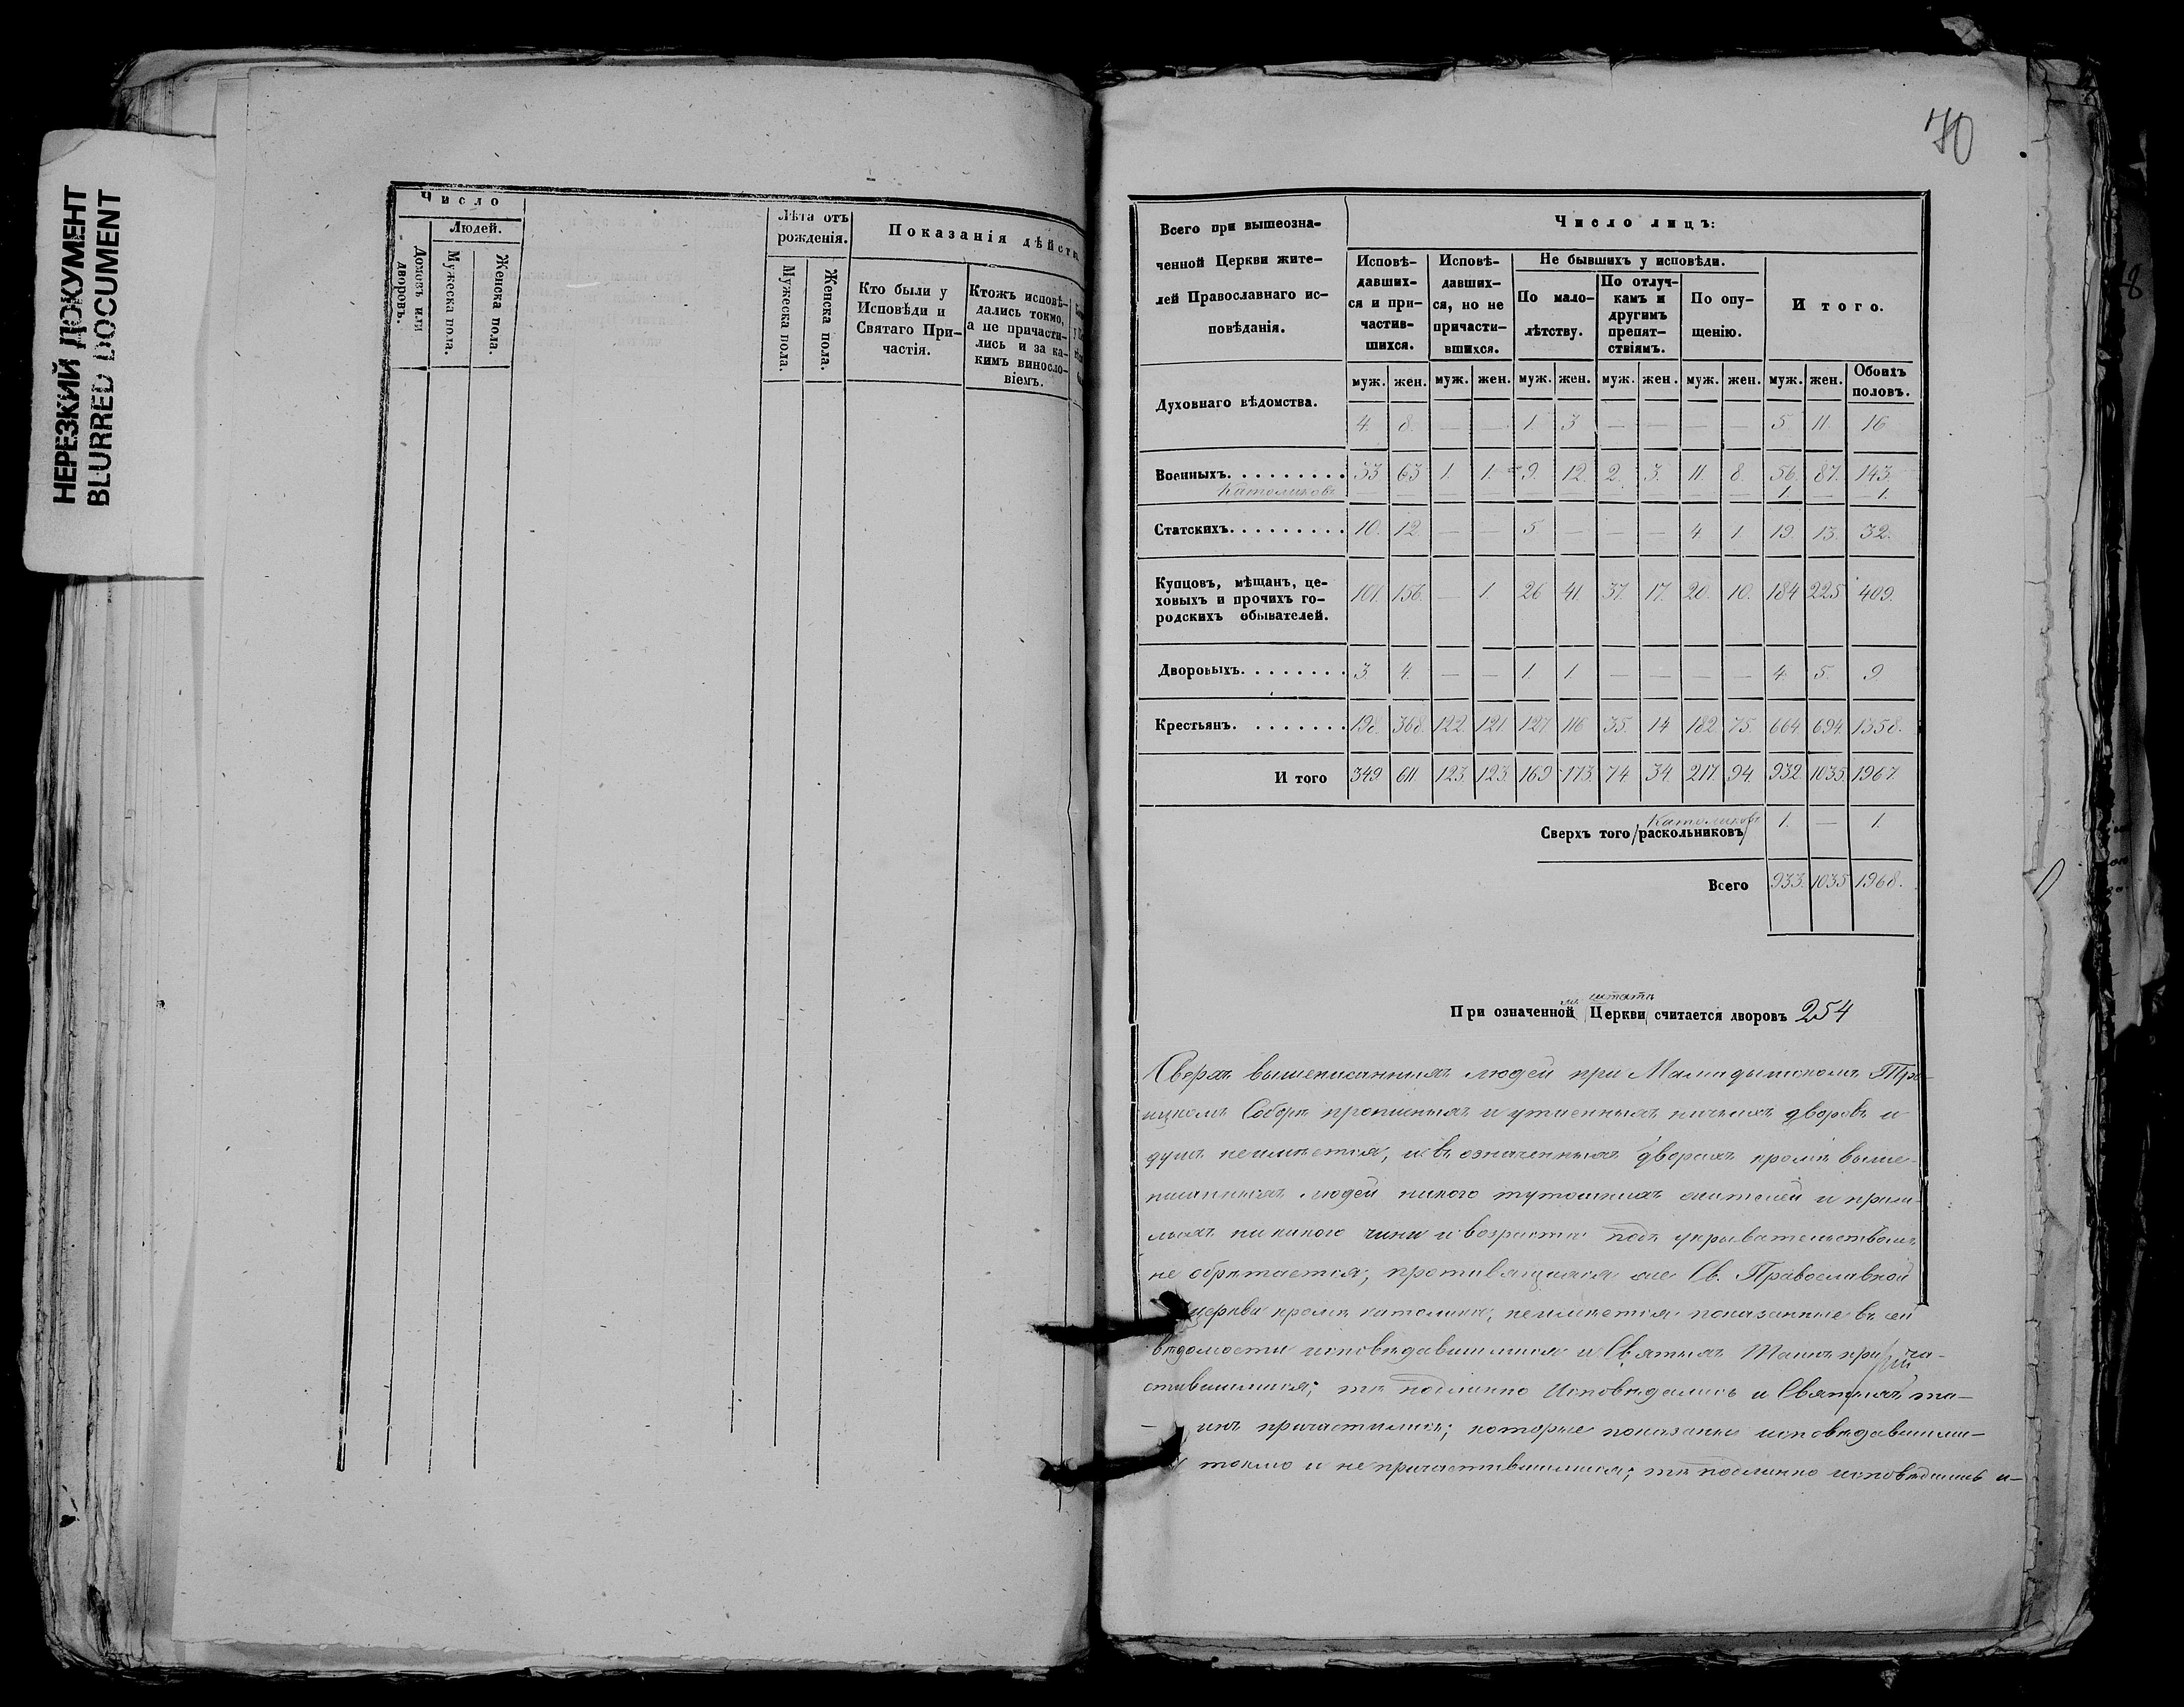 НЕРЕЗКИЙ ДОКУМЕНТ
BLURRED DOCUMENT
Число
Людей.
Домовъ или дворовъ.
Мужеска пола.
Женска пола.
Лѣта отъ рожденія.
Мужеска пола.
Женска пола.
Показанія дѣйств
Кто были у
Исповѣди и
Святаго При-
частія.
Ктожъ исповѣ-
дались токмо,
а не причасти-
лись и за ка-
кимъ винosло-
віемъ.
70
Всего при вышеозна-
ченной Церкви жите-
лей Православнаго ис-
повѣданія.
Число лицъ:
Исповѣ-
давших-
ся и при-
частив-
шихся.
Исповѣ-
давших-
ся, но не
причасти-
вшихся.
Не бывшихъ у исповѣди.
По мало-
лѣтству.
По отлуч-
камъ и
другимъ
препят-
ствіямъ.
По опу-
щенію.
Итого.
муж. жен. муж. жен. муж. жен. муж. жен. муж. жен. муж. жен. Обоихъ половъ.
Духовнаго вѣдомства. 4. 8. — — 1. 3 — — — — 5 11. 16
Военныхъ. 33. 63 1. 1. 9. 12. 2. 3. 11. 8. 56. 87. 143.
Католиковъ — — — — — — — — — — 1. — 1.
Статскихъ. 10. 12. — — 5 — — — 4. 1 19. 13. 32.
Купцовъ, мѣщанъ, це-
ховыхъ и прочихъ го-
родскихъ обывателей. 101. 156. — 1. 26 41. 37. 17. 20. 10. 184 225 409.
Дворовыхъ. 3 4. — — 1. 1. — — — — 4. 5. 9
Крестьянъ. 198. 368. 122. 121. 127 116 35. 14 182. 75. 664. 694. 1358.
И того 349. 611. 123. 123. 169 173. 74 34. 217. 94. 932. 1035. 1967.
Католиковъ
Сверхъ того /раскольниковъ/ 1. — 1.
Всего 933. 1035 1968.
При означенной Церкви считается дворовъ 254
Сверхъ вышеписанныхъ людей при Мамадышскомъ Тро-
ицкомъ Соборѣ прописныхъ и утаенныхъ ничьихъ дворовъ и
душъ неимѣется, и въ означенныхъ дворахъ кромѣ выше-
писанныхъ людей никого тутошнихъ жителей и приш-
лыхъ никакого чина и возраста подъ укрывательствомъ
не обрѣтается, противящихся же Св. Православной
церкви кромѣ католика, неимѣется показанные въ сей
вѣдомости исповѣдавшимися и Святыхъ Таинъ прича-
стившимися; тѣ подлинно Исповѣдались и Святыхъ та-
инъ причастились; которые показаны исповѣдавшими-
токмо и не причастившимися; тѣ подлинно исповѣдались и-